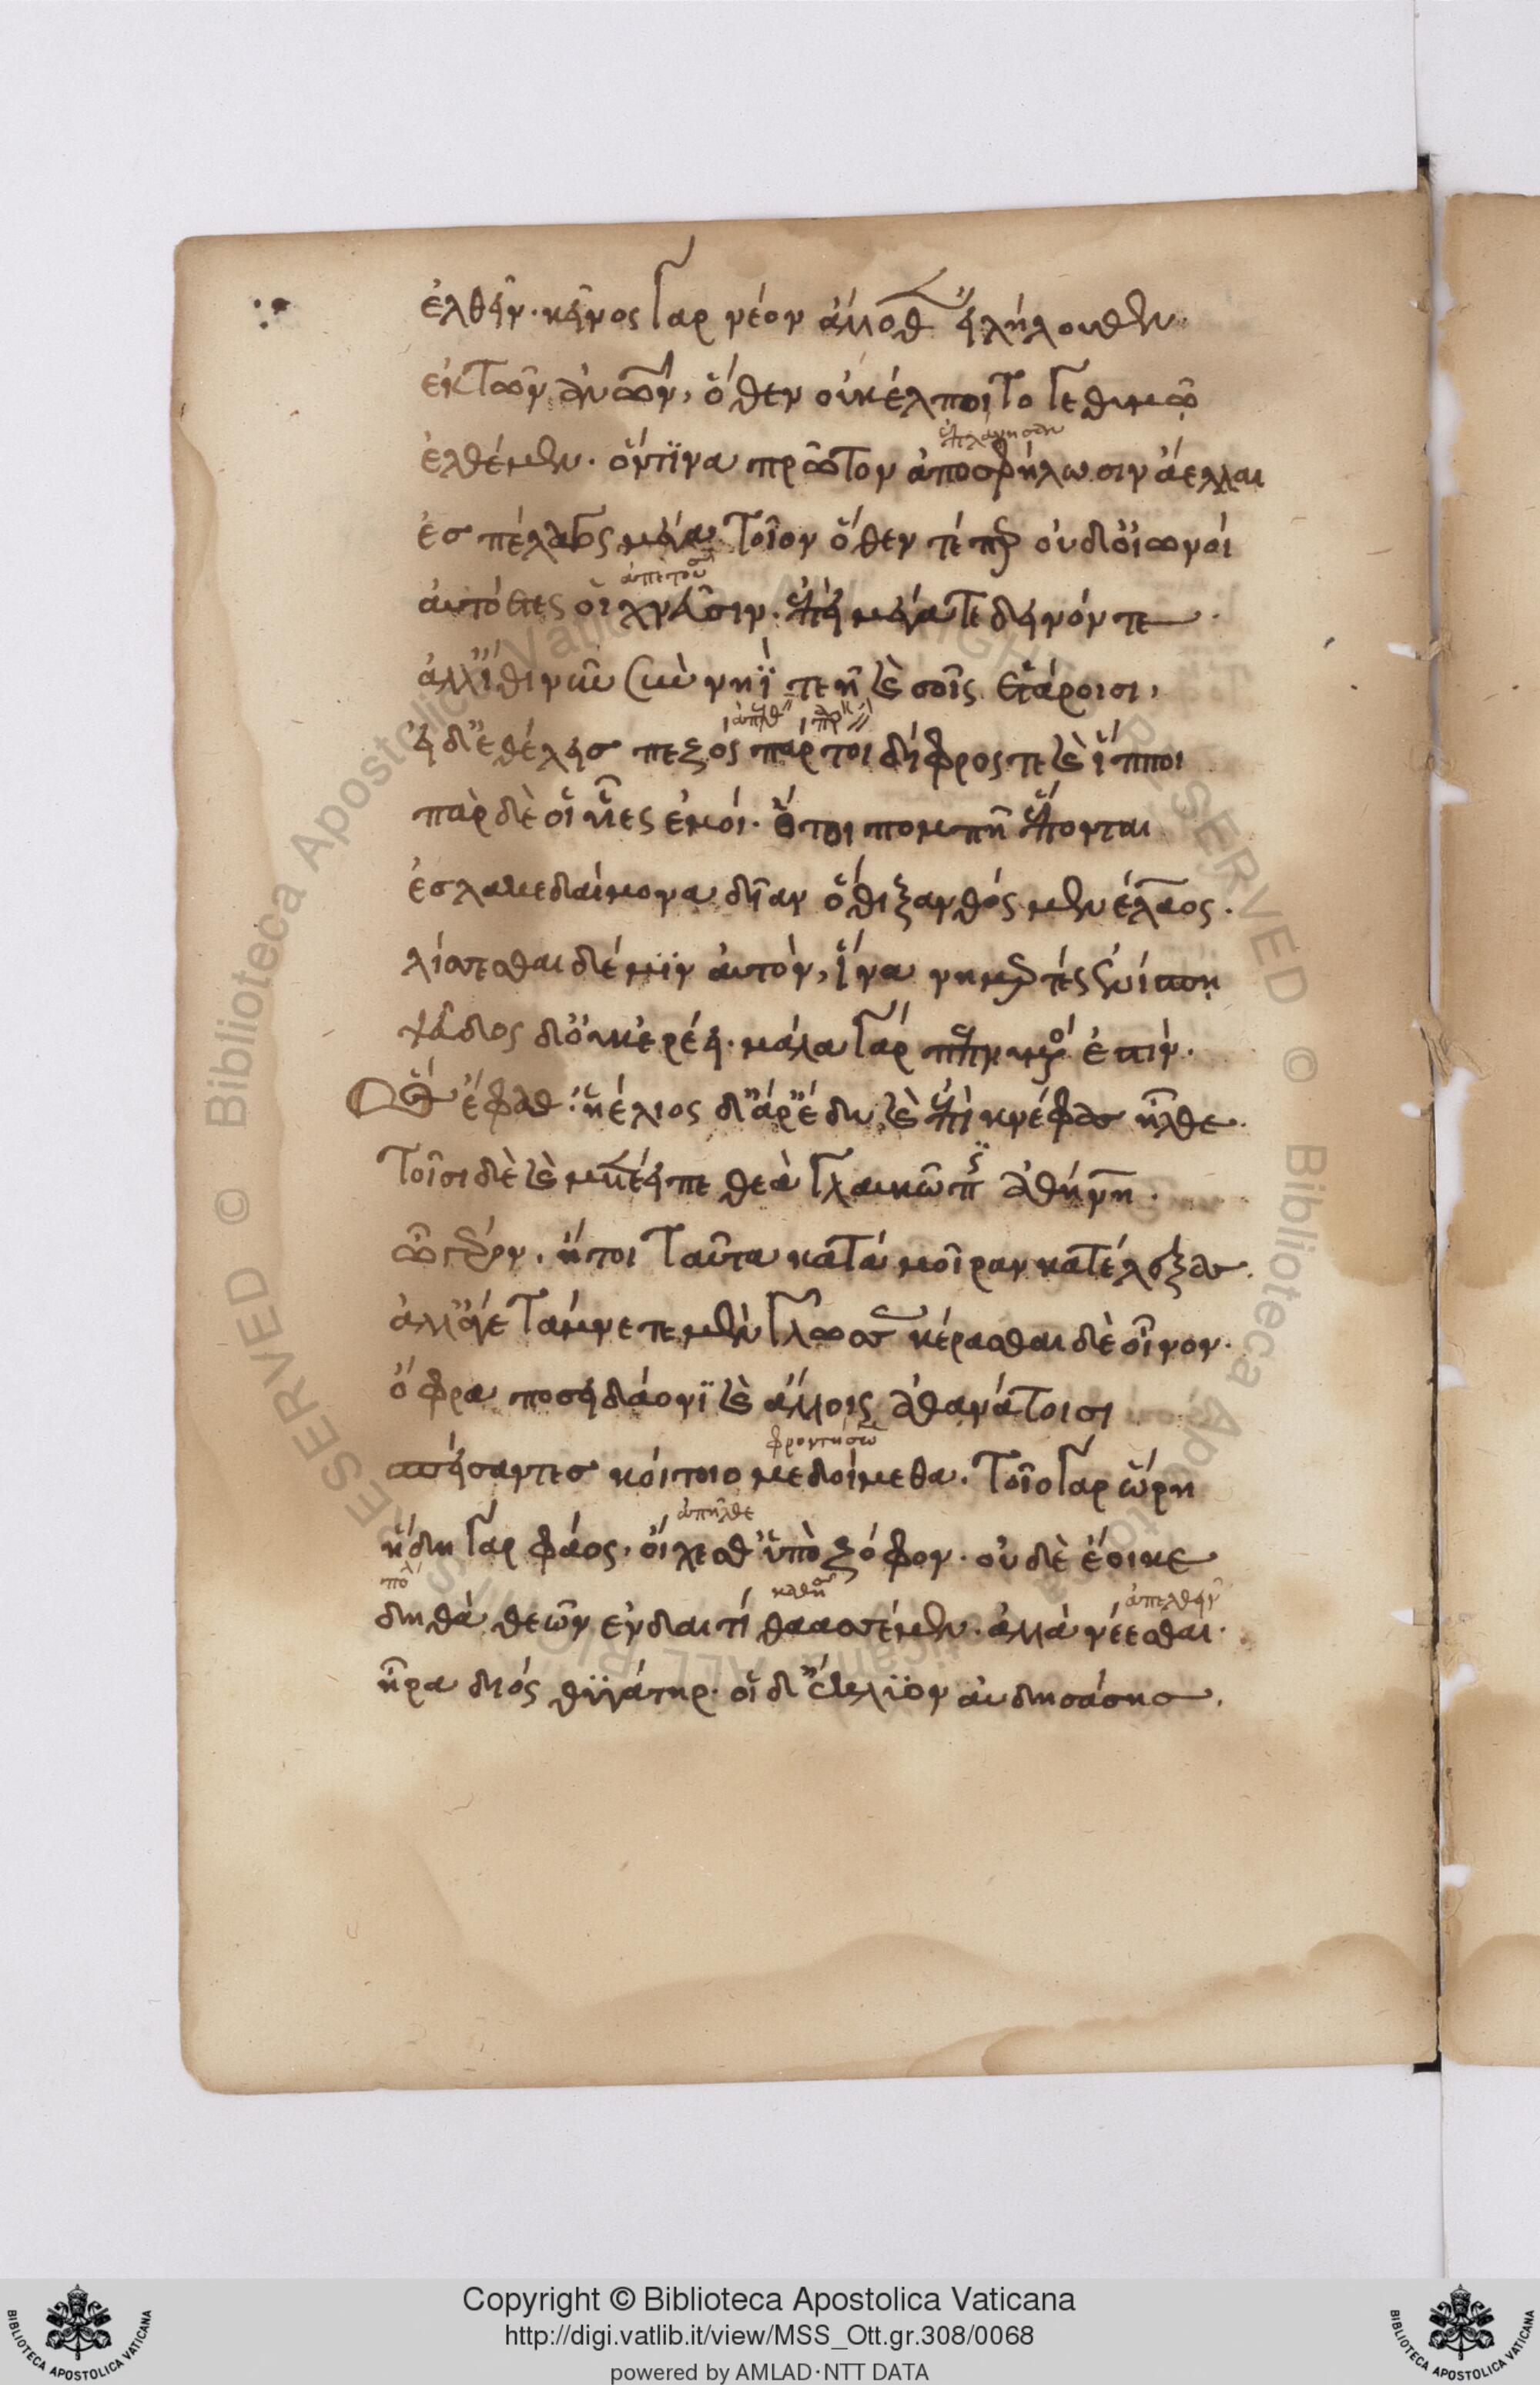 ἐλθεῖν· κεῖνος γὰρ νέον ἄλλοθεν εἰλήλουθεν·
ἐκ τῶν ἀνων, ὅθεν οὐκ ἔλποιτο γε θυμῶ
ἐπλάνησεν
ἐλθέμεν· ὅντινα πρῶτον ἀποσφήλωσιν ἄελλαι
ἐς πέλαγος μέγα τοῖον ὅθεν τέ περ οὐδ' οἰωνοί
αὐτόετες οἰχνεῦσιν· ἐπεὶ μέγα τε δεινόν τε·
ἀλλ' ἴθι νῦν σὺν νηΐ τε σῆ καὶ σοῖς ἑτάροισι,
εἰ δ' ἐθέλεις πεζος πάρ τοι δίφρος τε καὶ ἵπποι
πὰρ δὲ οἱ υἷες ἐμοί· οἵ τοι πομπῆ ἕπονται
ἐς λακεδαίμονα δῖαν ὅθι ξανθός μενέλαος·
λίσσεσθαι δέ μϊν αὐτόν, ἵνα νημερτές ἐνίσπη
ψεῦδος δ' οὐκ ἐρέει· μάλα γάρ πεπνυμένος ἐστίν·
Ὣς ἔφαθ' ἠέλιος δ' ἄρ' ἔδυ καὶ ἐπὶ κνέφας ἦλθε·
τοῖσι δὲ καὶ μετέειπε θεὰ γλαυκῶπις ἀθήνη·
ὦ γέρον, ἤτοι ταῦτα κατὰ μοῖραν κατέλεξας·
ἀλλ' ἄγε τάμνετε μὲν γλώσσας κέρασθαι δὲ οἶνον·
ὄφρα ποσειδάονϊ καὶ ἄλλοις ἀθανάτοισι
φροντήσω
σπείσαντες κοίτοιο μεδοίμεθα· τοῖο γὰρ ὥρη
ἀπῆλθε
ἤδη γὰρ φάος, οἴχεθ' ὑπὸ ζόφον· οὐδὲ ἔοικε
ἀπελθεῖν
δηθὰ θεῶν ἐν δαιτί θαασσέμεν· ἀλλὰ νέεσθαι·
ἦ ῥα διός θϋγάτηρ· οἱ δ' ἔκλϋον αὐδησάσης·
Copyright © Biblioteca Apostolica Vaticana
http://digi.vatlib.it/view/MSS_Ott.gr.308/0068
powered by AMLAD·NTT DATA